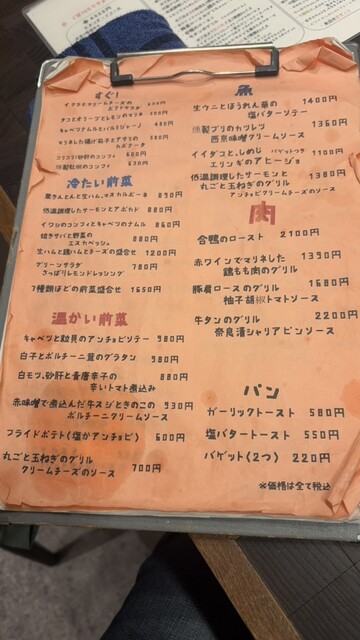 すぐ!
イクラとクリームチーズの
ポテトサラダ
タコとオリーブとレモンのマリネ
キャベツナムルとパルミジャーノ
カポナータ
コリコリ砂肝のコンフィ 680
燻製牡蠣のコンフィ 630円
冷たい前菜
栗きんとんと生ハム、マスカルポーネ 890
低温調理したサーモンとアボカド 880円
イワシのコンフィとキャベツのナムル 680
焼きサバと野菜の
エスカベッシュ 880円
生ハムと鶏ハムとチーズの盛合せ 1200円
グリーンサラダ
さっぱりレモンドレッシング 780円
7種類ほどの前菜盛合せ 1650円
温かい前菜
キャベツと粒貝のアンチョビソテー 980円
白子とポルチーニ茸のグラタン 980円
白モツ、砂肝と青唐辛子の 880円
辛いトマト煮込み
赤味噌で煮込んだ牛スジときのこの 930円
ポルチーニクリームソース
フライドポテト(塩かアンチョビ) 600円
丸ごと玉ねぎのグリル
クリームチーズのソース 700円
魚
生ウニとほうれん草の 1400円
塩バターソテー
燻製ブリのカツレツ 1360円
西京味噌クリームソース
イイダコと、しめじ バゲットつき 1100円
エリンギのアヒージョ
低温調理したサーモンと 1380円
丸ごと玉ねぎのグリル
アンチョビクリームチーズのソース
肉
合鴨のロースト 2100円
赤ワインでマリネした 1390円
鶏もも肉のグリル
豚肩ロースのグリル 1680円
柚子胡椒トマトソース
牛タンのグリル 2200円
奈良漬シャリアピンソース
パン
ガーリックトースト 580円
塩バタートースト 550円
バゲット(2つ) 220円
※価格は全て税込